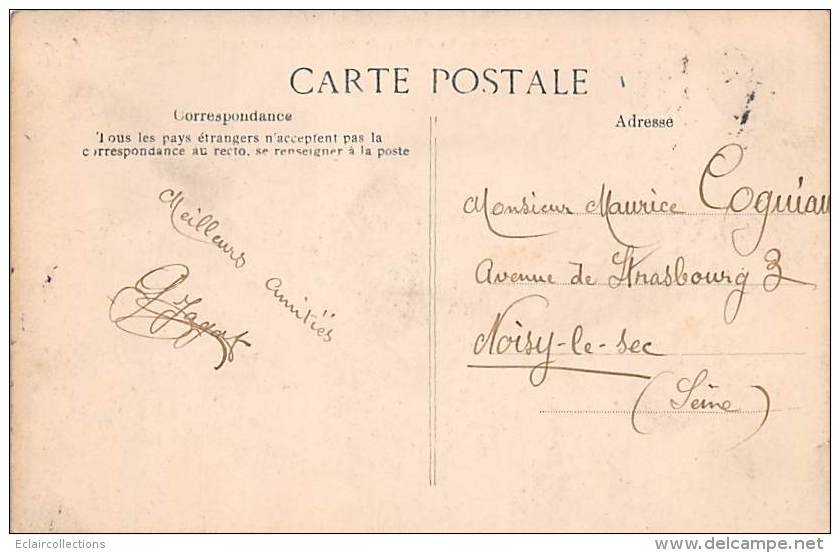 CARTE POSTALE
Correspondance
Tous les pays étrangers n'acceptent pas la
correspondance au recto, se renseigner à la poste
Adresse
Meilleurs amitiés
Monsieur Maurice
Avenue de Strasbourg 3
Noisy-le-sec
(Seine)
Eclaircollections
www.delcampe.net